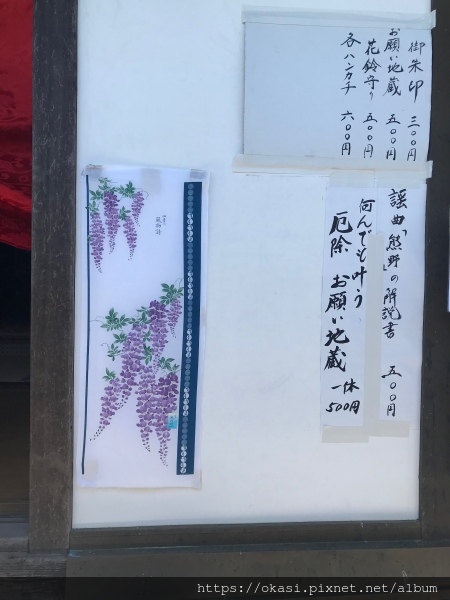 御朱印 三〇〇円
お願い地蔵 五〇〇円
花鈴守り 五〇〇円
各ハンカチ 六〇〇円
謡曲「熊野」の解説書 五〇〇円
何んでも叶う
厄除 お願い地蔵 一体
500円
https://okasi.pixnet.net/album